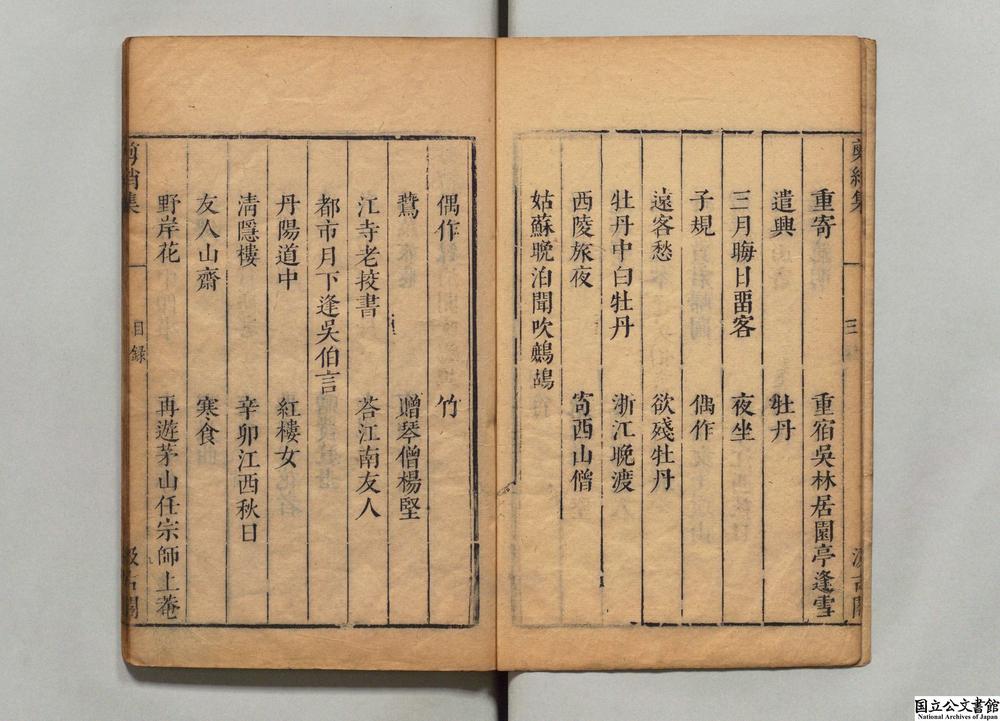 剪綃集
三
汲古閣
重寄　重宿吳林居園亭逢雪
遣興　牡丹
三月晦日畱客　夜坐
子規　偶作
遠客愁　欲殘牡丹
牡丹中白牡丹　浙江晚渡
西陵旅夜　寄西山僧
姑蘇晚泊聞吹鷓鴣
偶作　竹
鶩　贈琴僧楊堅
江寺老挍書　荅江南友人
都市月下逢吳伯言
丹陽道中　紅樓女
淸隱樓　辛卯江西秋日
友人山齋　寒食
野岸花　再遊茅山任宗師上菴
剪綃集
目錄
汲古閣
国立公文書館
National Archives of Japan